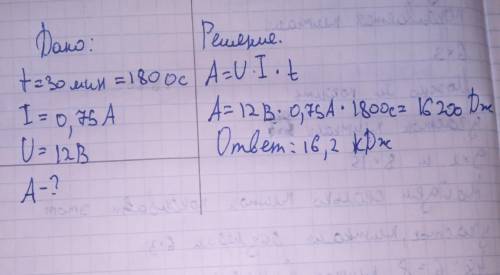 Дано:
t = 30 мин = 1800с
I = 0,75А
U = 12В
А - ?
Решение.
А = U · I · t
А = 12В · 0,75А · 1800с = 16200 Дж
Ответ: 16,2 кДж